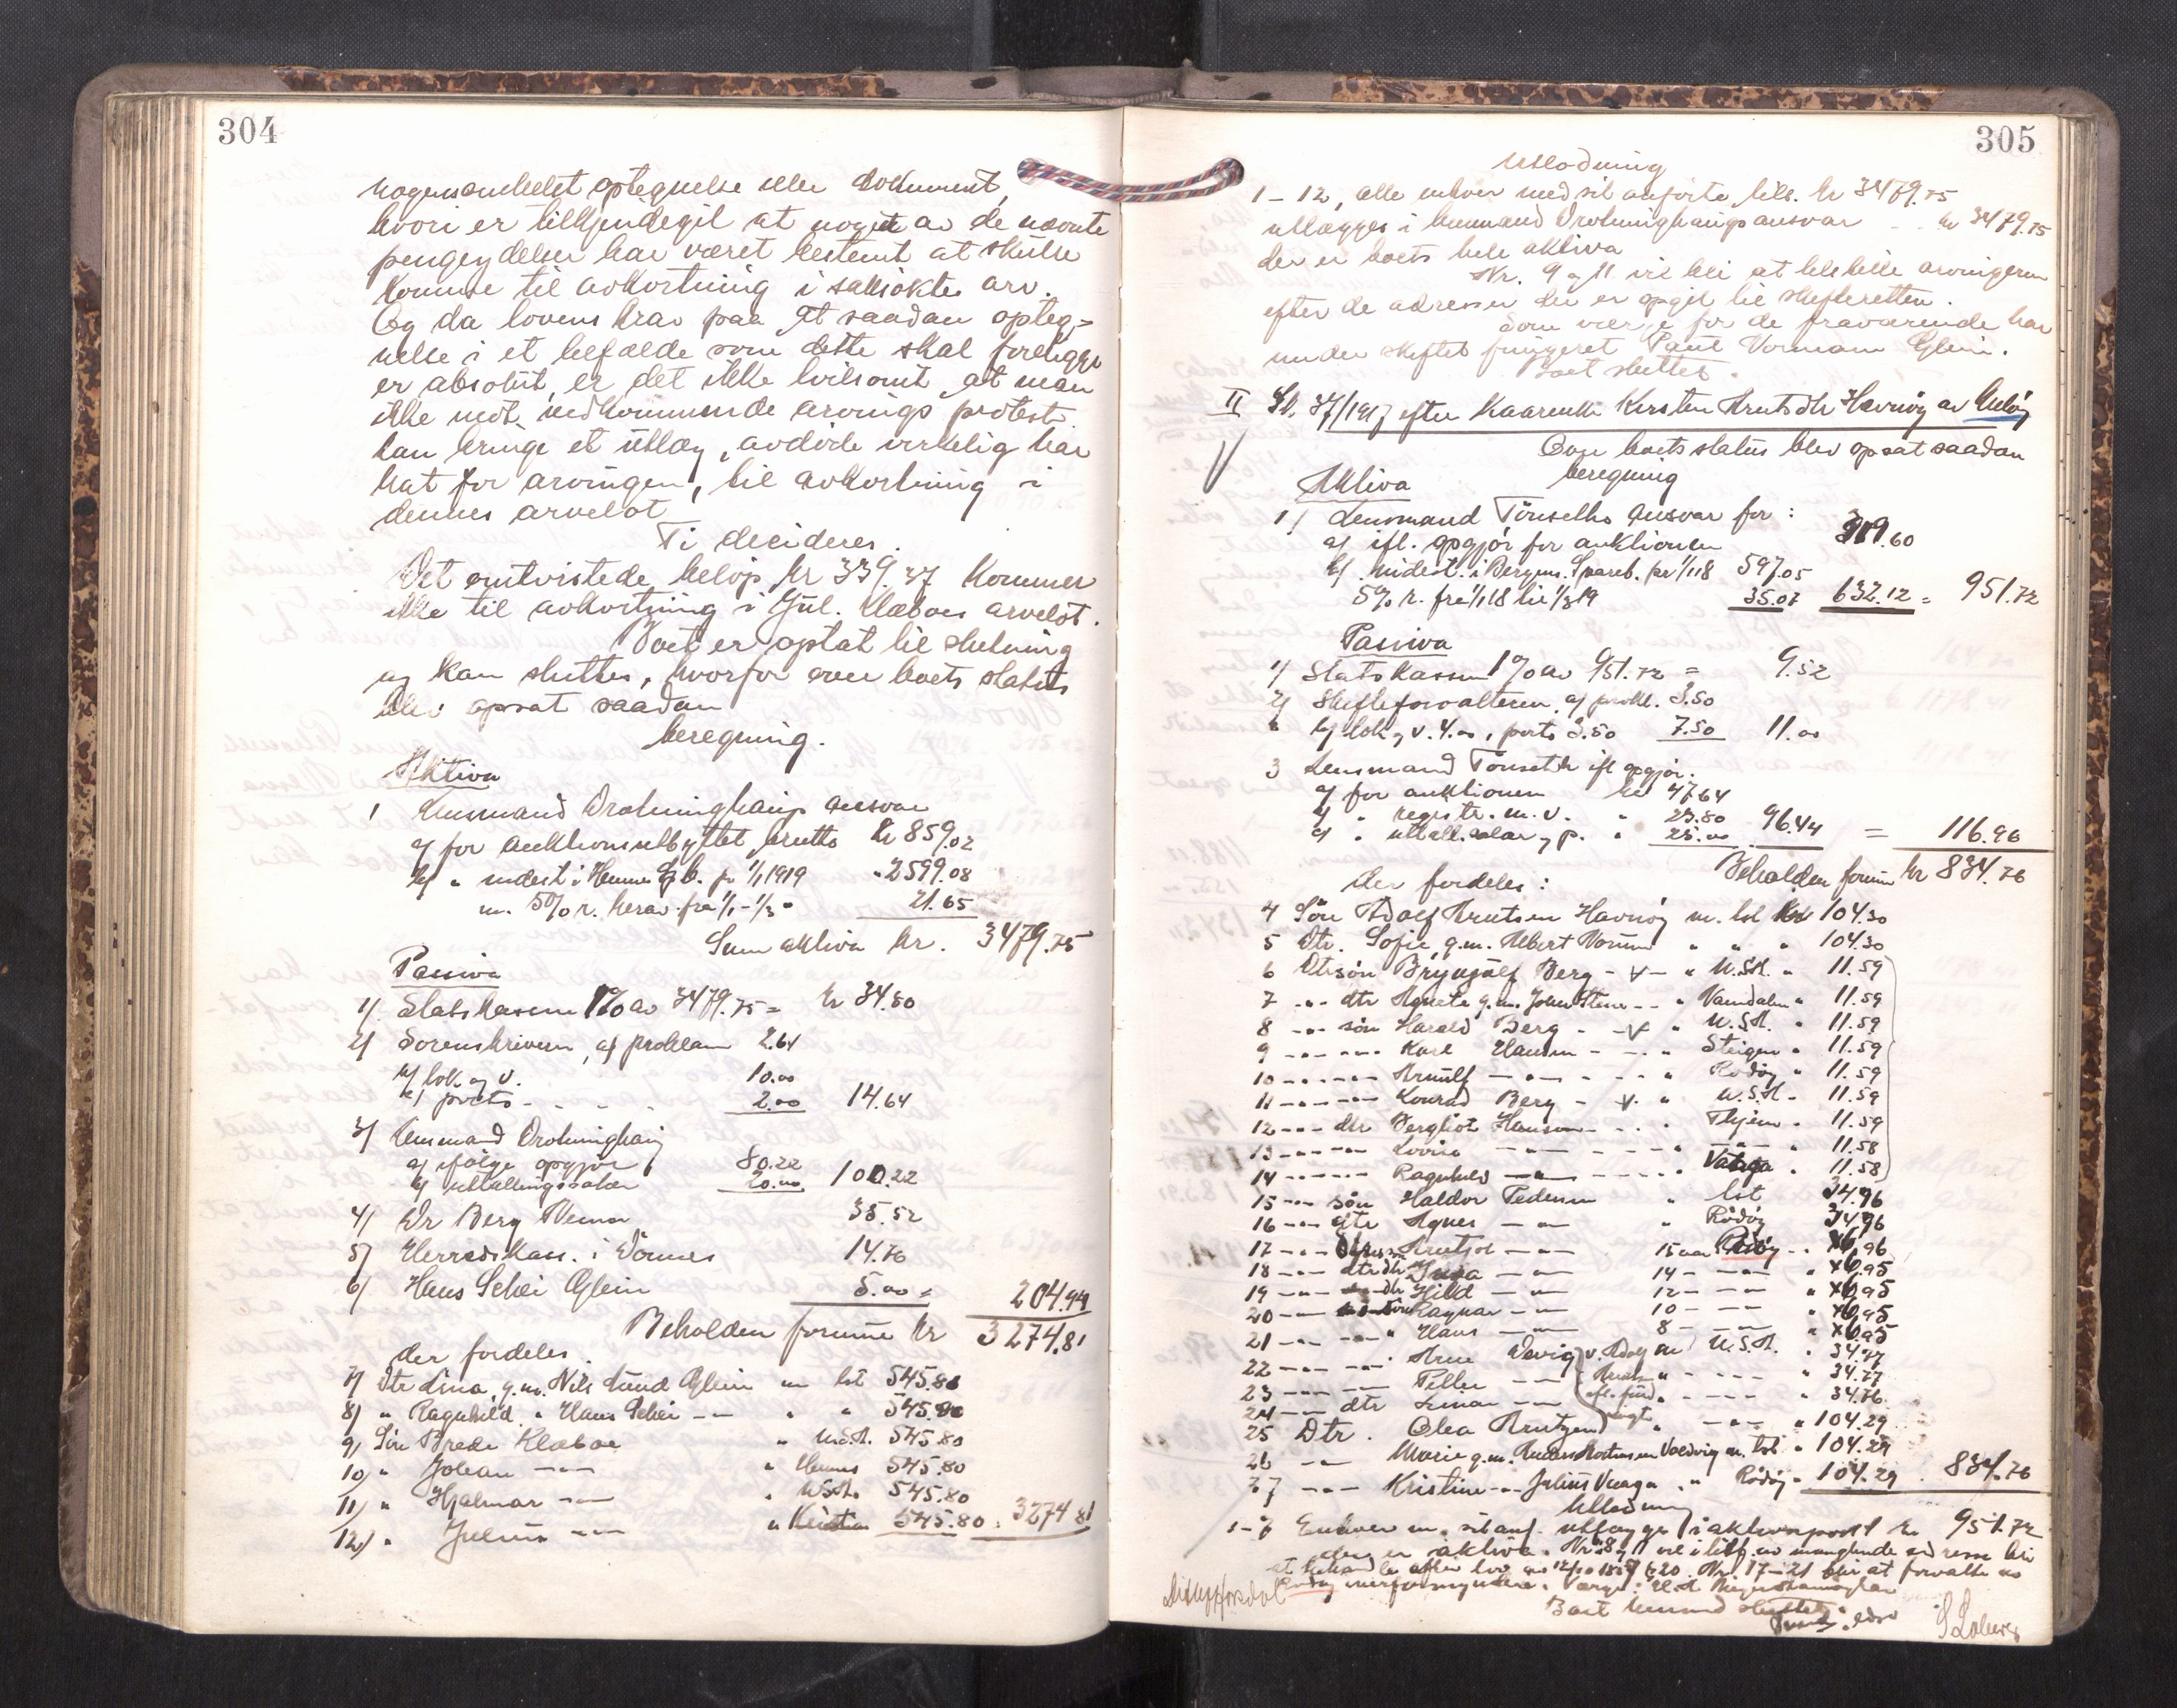 304
nogensomhelst optegnelse eller dokument,
hvori er tilkjendegit at noget av de nævnte
pengeydelser har været bestemt at skulle
komme til avkortning i saksøktes arv.
Og da lovens krav paa at saadan opteg-
nelse i et tilfælde som dette skal foreligge
er absolut, er det ikke tvilsomt, at man
ikke mot vedkommende arvings protest
kan bringe et utlæg, avdøde virkelig har
hat for arvingen, til avkortning i
dennes arvelot.
Ti decideres.
Det omtvistede beløp kr 339.37 kommer
ikke til avkortning i Jul. Klæboes arvelot.
Boet er optat til slutning
og kan sluttes, hvorfor over boets status
blev opsat saadan
beregning.
Aktiva
1 Lensmand Drotninghaug ansvar
a) for auktionsutbyttet brutto kr 859.02
b) " indest. i Hemnes Spb. pr 1/1 1919 " 2599.08
m. 5% r. herav fra 1/1 - 1/3 " 21.65
Sum aktiva kr. 3479.75
Passiva
1) Statskassen 1% av 3479.75 = kr 34.80
2) Sorenskriveren, a) proklam 2.64
b) lok. og v. 10.00
c) porto - - - 2.00 14.64
3) Lensmand Drotninghaug
a) ifølge opgjør 80.22
b) utbetalingssalær 20.00 100.22
4) Dr Berg Nesna 35.52
5) Herredskass. i Dønnes 14.76
6) Hans Schei Glein 5.00 = 204.94
Beholden formue kr 3274.81
der fordeles
7) Dtr Lina, g.m. Nils Lund Glein m lot 545.81
8) " Ragnhild " Hans Schei - " - " " 545.80
9) Søn Brede Klæboe " U.S.A. 545.80
10) " Johan - " - " Hemnes 545.80
11) " Hjalmar - " - " U.S.A. 545.80
12) " Julius - " - " 545.80 = 3274 81
305
Utlodning
1 - 12, alle enhver med sit anførte, tils. kr 3479.75
utlægges i lensmand Drotninghaugs ansvar - - kr 3479.75
der er boets hele aktiva
Nr. 9 og 11 vil bli at tilstille arvingerne
efter de adresser der er opgit til skifteretten.
Som verge for de fraværende har
under skiftet fungeret Paul Normann Glein.
Boet sluttet.
II Sk. 37/1917 efter Kaarenth Kersten Knutsdtr Havnøy av
Over boets status blev opsat saadan
beregning
Aktiva
1) Lensmand Tønseths ansvar for:
a) ifl. opgjør for auktionen 319.60
b) indest. i Bergens Spareb. pr 1/1 18 597.05
5% r. fra 1/1 18 til 1/3 19 35.07 632.12 = 951.72
Passiva
1) Statskassen 1% av 951.72 = 9.52
2) Skifteforvalteren, a) prokl. 3.50
b) lok. og v. 4.00, porto 3.50 7.50 11.00
3 Lensmand Tønseth ifl opgjør.
a) for auktionen kr 47.64
b) " registr. m. v. " 23.80
c) " utbetal. salær og p. " 25.00 96.44 = 116.96
Beholden formue kr 834.76
der fordeles:
4 Søn Adolf Knutsen Havnøy m. lot kr 104.30
5 Dtr. Sofie, g.m. Albert " " " 104.30
6 Dtrsøn Brynjulf Berg - v - " U.S.A. " 11.59
7 - " - dtr Agnete g.m. John Stene - - " Vandalen " 11.59
8 - " - søn Harald Berg - v " U.S.A. " 11.59
9 - " - " - Karl Hansen - - " Steigen " 11.59
10 - " - " - Arnulf - " - - - " Rødøy " 11.59
11 - " - " - Konrad Berg - v. " U.S.A. - 11.59
12 - " - dtr Bergliot Hansen - - " Tjøm " 11.59
13 - " - " - Lovise - " - - - - " - " - " 11.58
14 - " - " - Ragnhild - " - " 11.58
15 - " - søn Haldor Pedersen " lot 34.96
16 - " - dtr Agnes - " - " Rødøy 34.96
17 - " - Knut - " - 15 aar Rødøy - " 6.96
18 - " - dtrdtr - " - 14 - - " - " 6.95
19 - " - dtr Hild - " - 12 - - " - " 6.95
20 - " - søn Ragnar - " - 10 - - " - " 6.95
21 - " - " Hans - " - 8 - - " - " 6.95
22 - " - Arne v. Adolf U.S.A. " 34.77
23 - " - Petter - " - " 34.77
24 - " - dtr - " - " 34.76
25 Dtr. Olea Knutsen " - " - " 104.29
26 - " - Marie g.m. m. lot " 104.29
27 - " - Kristine - " - Julius Vaaga " Rødøy " 104.29 834.76
Utlodning
1-27 Enhver m. sit anf. utlægges i aktivapost 1 kr 951.72
der er aktiva. Nr. 8 og 11 vil i tilf. av manglende adresse bli
at behandle efter lov av 12/10 1857 § 20. Nr. 17-21 blir at forvalte av
Rødøy overformynderi.
Boet sluttet